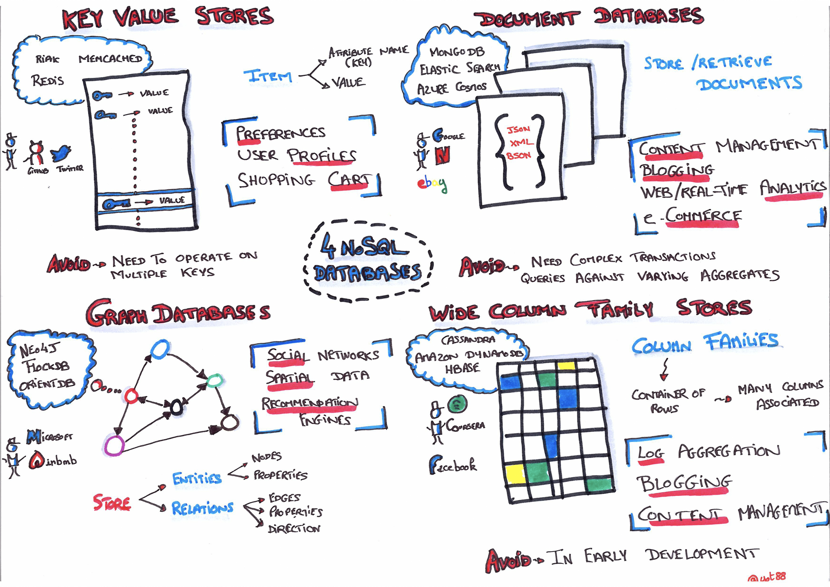 KEY VALUE STORES
RIAK MEMCACHED
REDIS
VALUE
VALUE
VALUE
GitHub Twitter
ITEM
ATTRIBUTE NAME
(KEY)
VALUE
PREFERENCES
USER PROFILES
SHOPPING CART
AVOID NEED TO OPERATE ON
MULTIPLE KEYS
DOCUMENT DATABASES
MONGODB
ELASTIC SEARCH
AZURE COSMOS
GOOGLE
N
ebay
{JSON
XML
BSON}
STORE / RETRIEVE
DOCUMENTS
CONTENT MANAGEMENT
BLOGGING
WEB/REAL-TIME ANALYTICS
e-COMMERCE
AVOID NEED COMPLEX TRANSACTIONS
QUERIES AGAINST VARYING AGGREGATES
4 NoSQL
DATABASES
GRAPH DATABASES
NEO4J
FLOCKDB
ORIENTDB
MICROSOFT
airbnb
SOCIAL NETWORKS
SPATIAL DATA
RECOMMENDATION
ENGINES
STORE
ENTITIES
NODES
PROPERTIES
RELATIONS
EDGES
PROPERTIES
DIRECTION
WIDE COLUMN FAMILY STORES
CASSANDRA
AMAZON DYNAMODB
HBASE
COURSERA
Facebook
COLUMN FAMILIES
CONTAINER OF
ROWS
MANY COLUMNS
ASSOCIATED
LOG AGGREGATION
BLOGGING
CONTENT MANAGEMENT
AVOID IN EARLY DEVELOPMENT